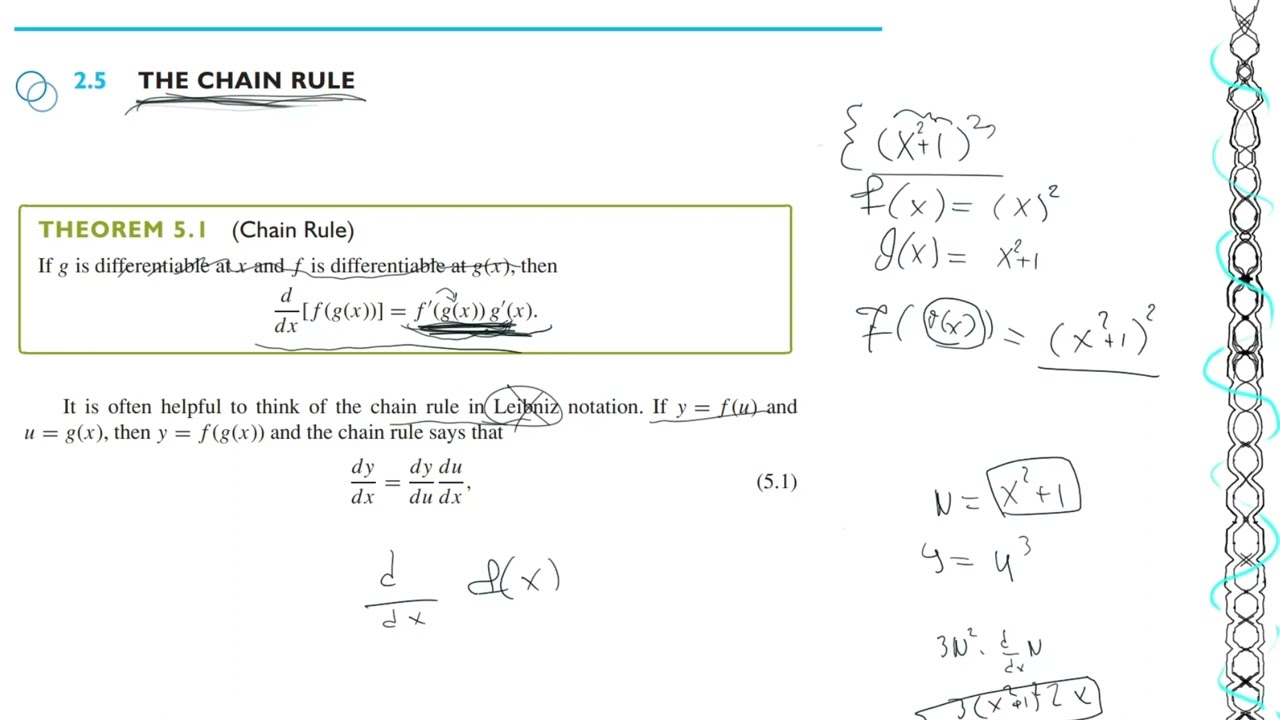 2.5 THE CHAIN RULE
THEOREM 5.1 (Chain Rule)
If g is differentiable at x and f is differentiable at g(x), then
d/dx [f(g(x))] = f′(g(x)) g′(x).
It is often helpful to think of the chain rule in Leibniz notation. If y = f(u) and
u = g(x), then y = f(g(x)) and the chain rule says that
dy/dx = dy/du du/dx, (5.1)
d/dx f(x)
{ (x²+1)²
f(x) = (x)²
g(x) = x²+1
f(g(x)) = (x²+1)²
u = x²+1
y = u³
3u² · d/dx u
3(x²+1)² 2x